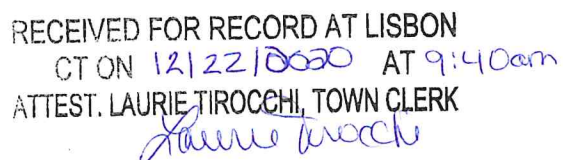 RECEIVED FOR RECORD AT LISBON
CT ON 12/22/2020 AT 9:40am
ATTEST. LAURIE TIROCCHI, TOWN CLERK
Laurie Tirocchi